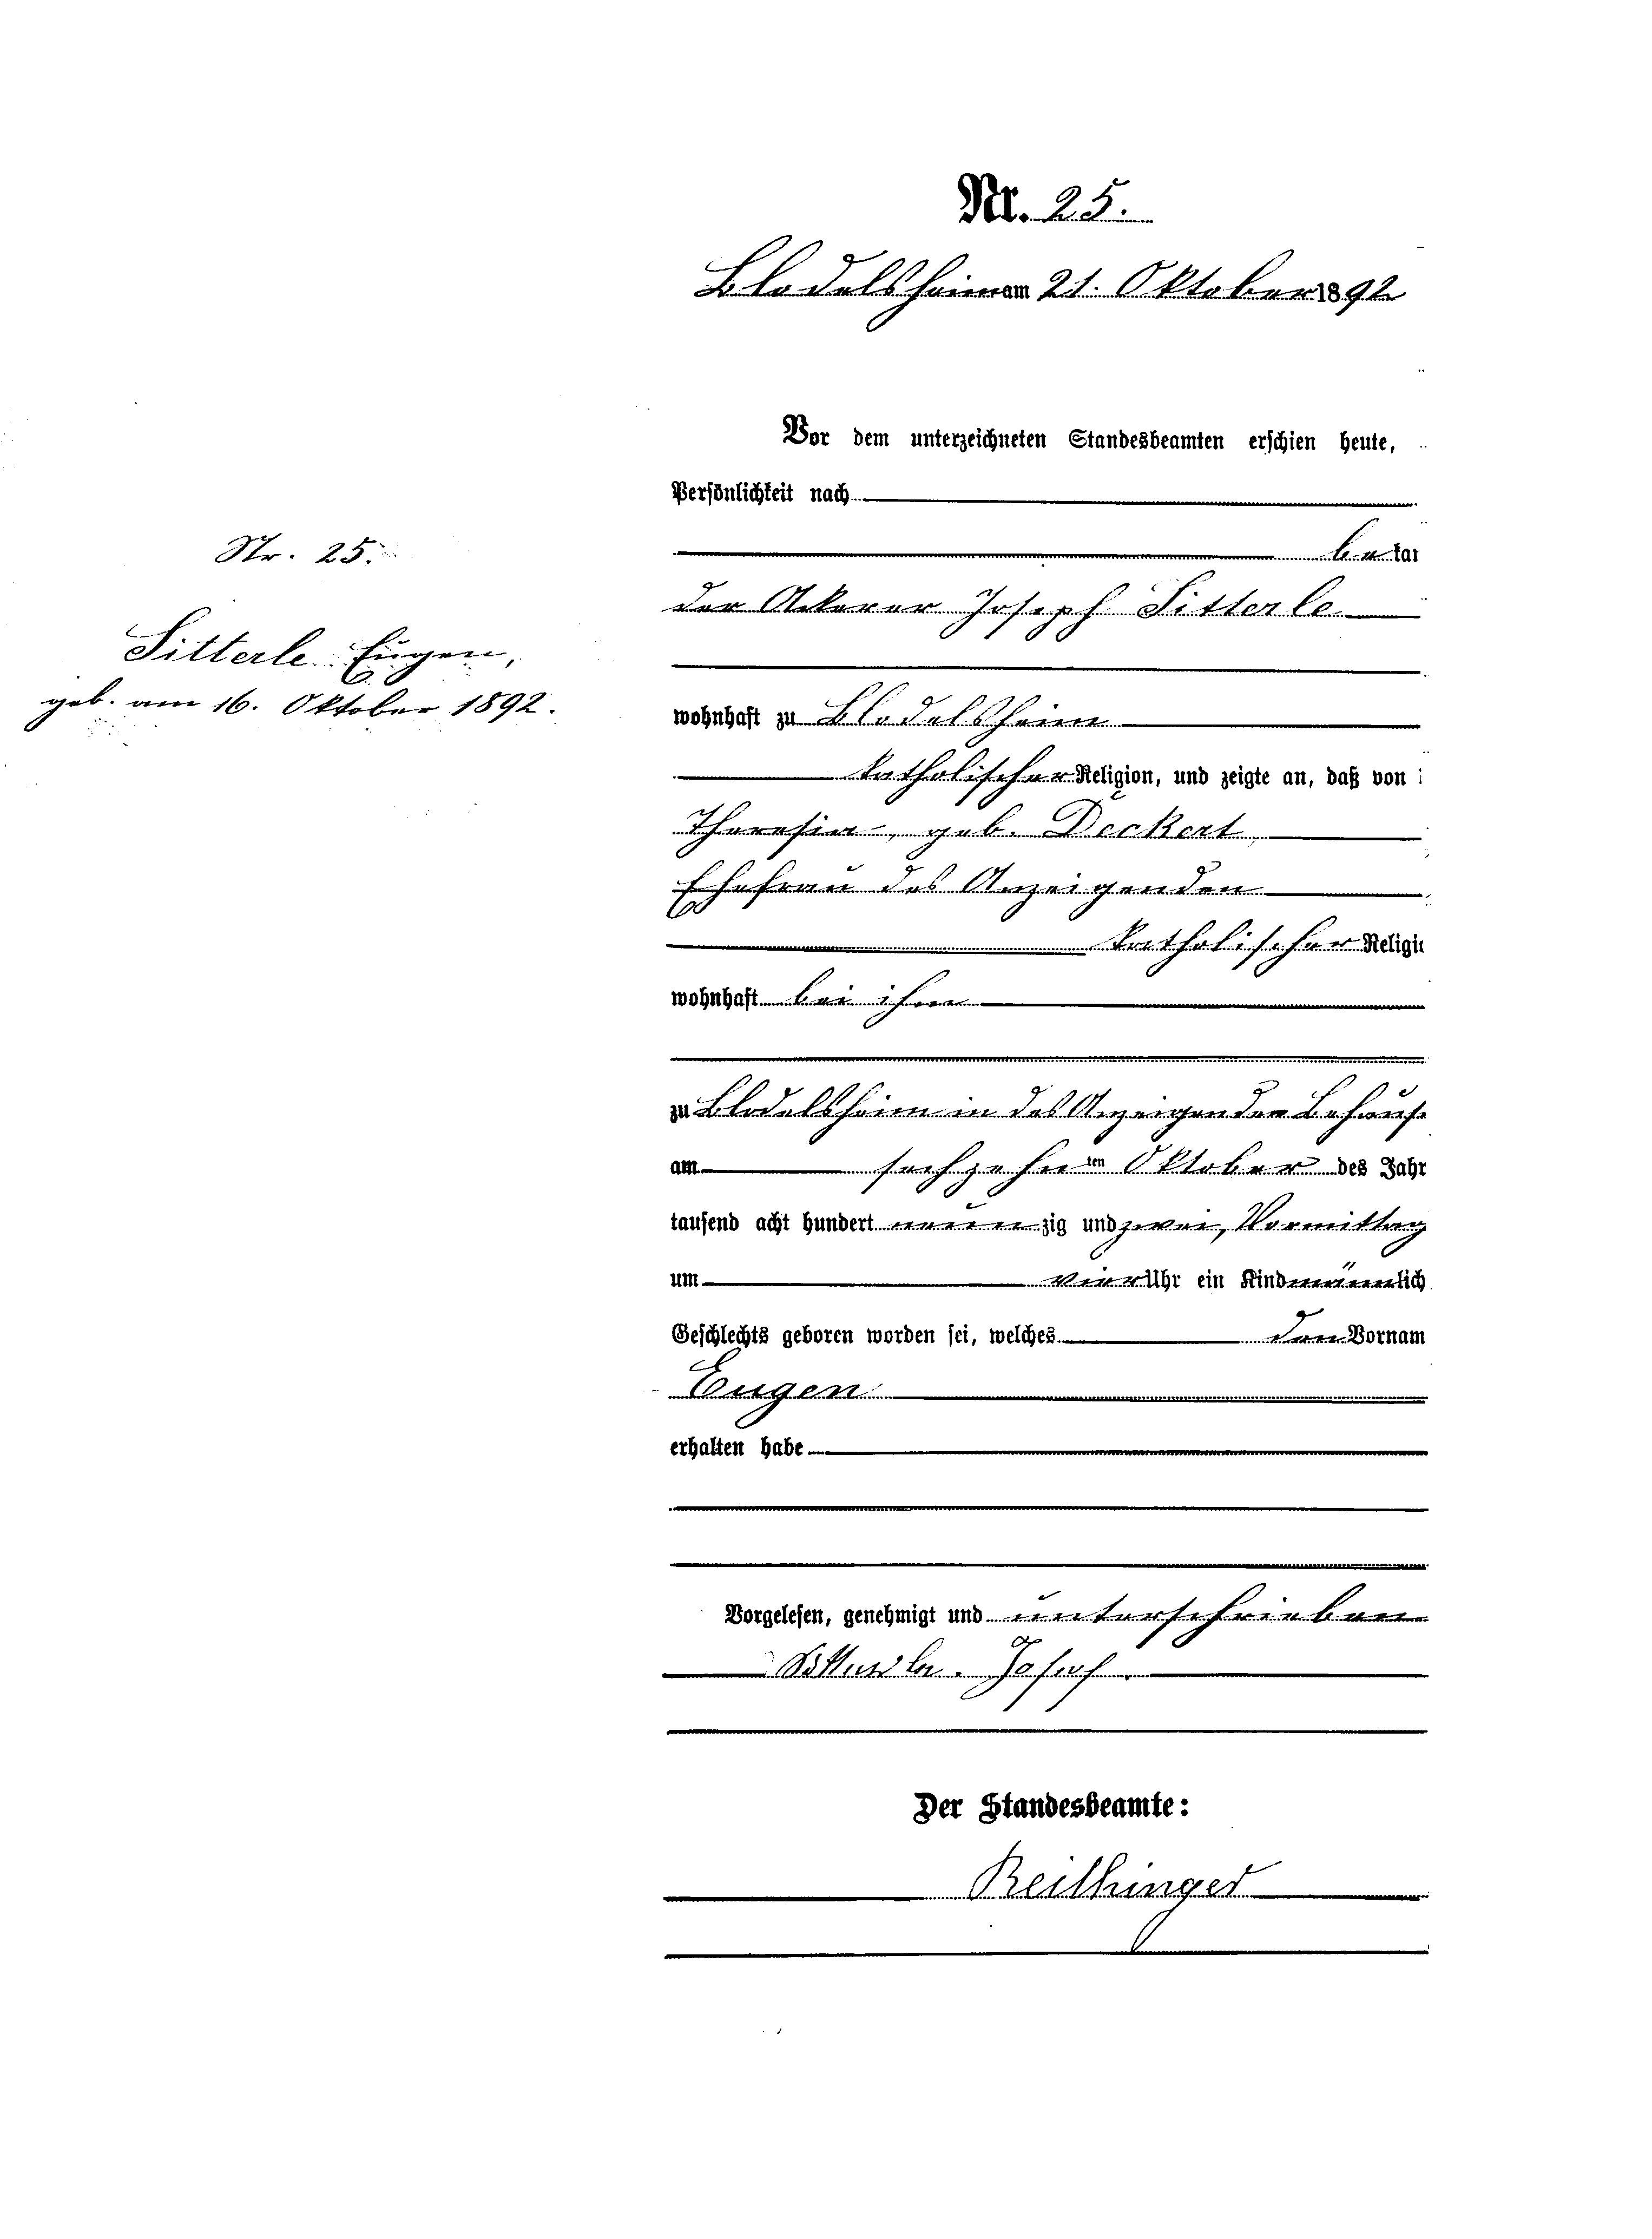 Nr. 25.
Blodelsheim am 21. Oktober 1892
Vor dem unterzeichneten Standesbeamten erschien heute,
Persönlichkeit nach
Nr. 25.
be kan
der Ackerer Joseph Sitterle
Sitterle Eugen,
geb. am 16. Oktober 1892.
wohnhaft zu Blodelsheim
katholischer Religion, und zeigte an, daß von
Theresia, geb. Deckert,
Ehefrau des Anzeigenden
katholischer Religi
wohnhaft bei ihm
zu Blodelsheim in des Anzeigenden Behaus
am sechzehn ten Oktober des Jahr
tausend acht hundert neun zig und zwei, Vormittag
um vier Uhr ein Kind männlich
Geschlechts geboren worden sei, welches den Vornam
Eugen
erhalten habe
Vorgelesen, genehmigt und unterschrieben
Sitterle. Josef.
Der Standesbeamte:
Reithinger